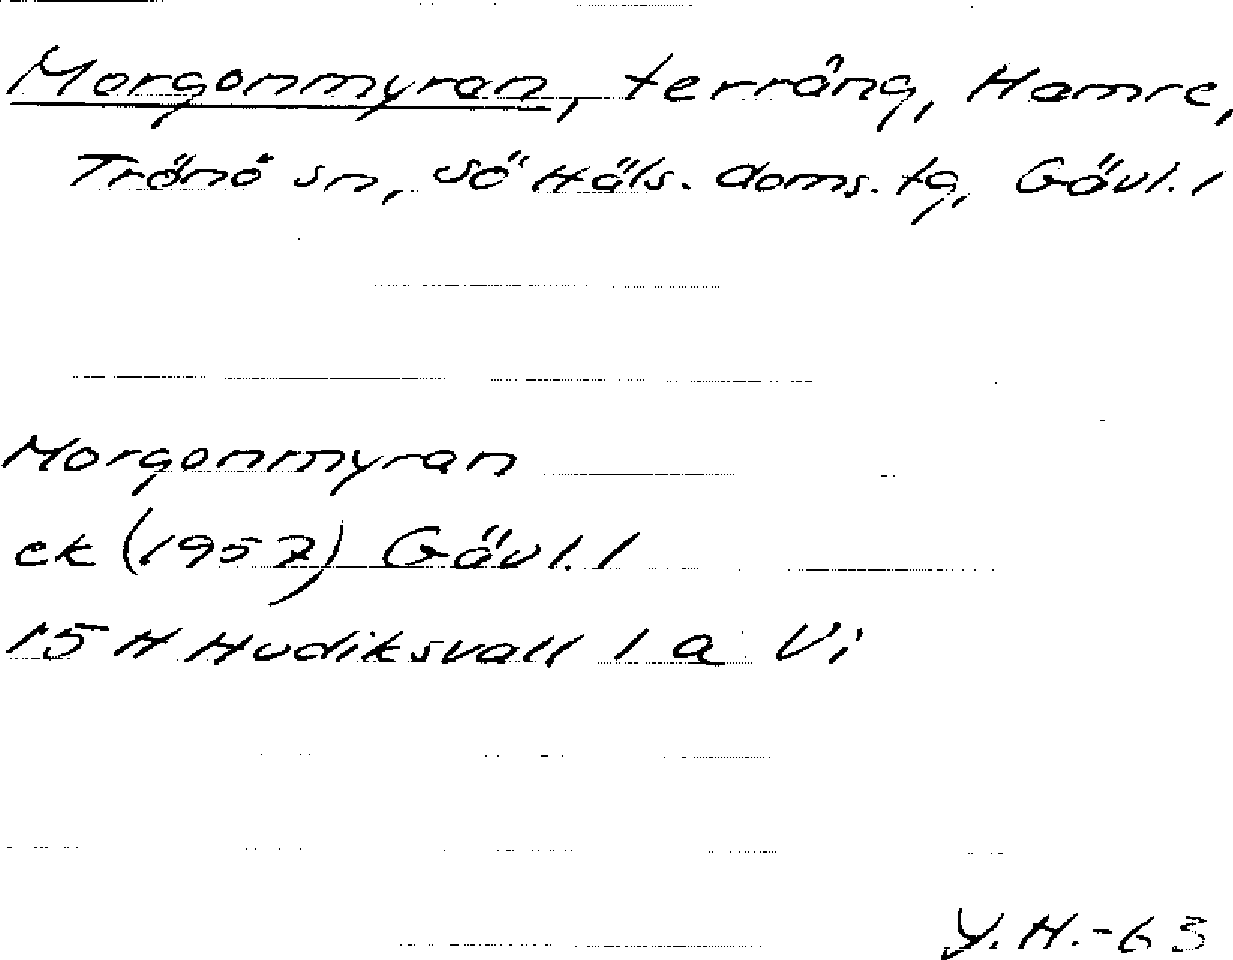 Morgonmyran, terräng, Hamre,
Trönö sn, Sö Häls. doms. tg, Gävl. l
Morgonmyran
ek (1957) Gävl. l
15 H Hudiksvall 1 a Vi
Y.H.-63